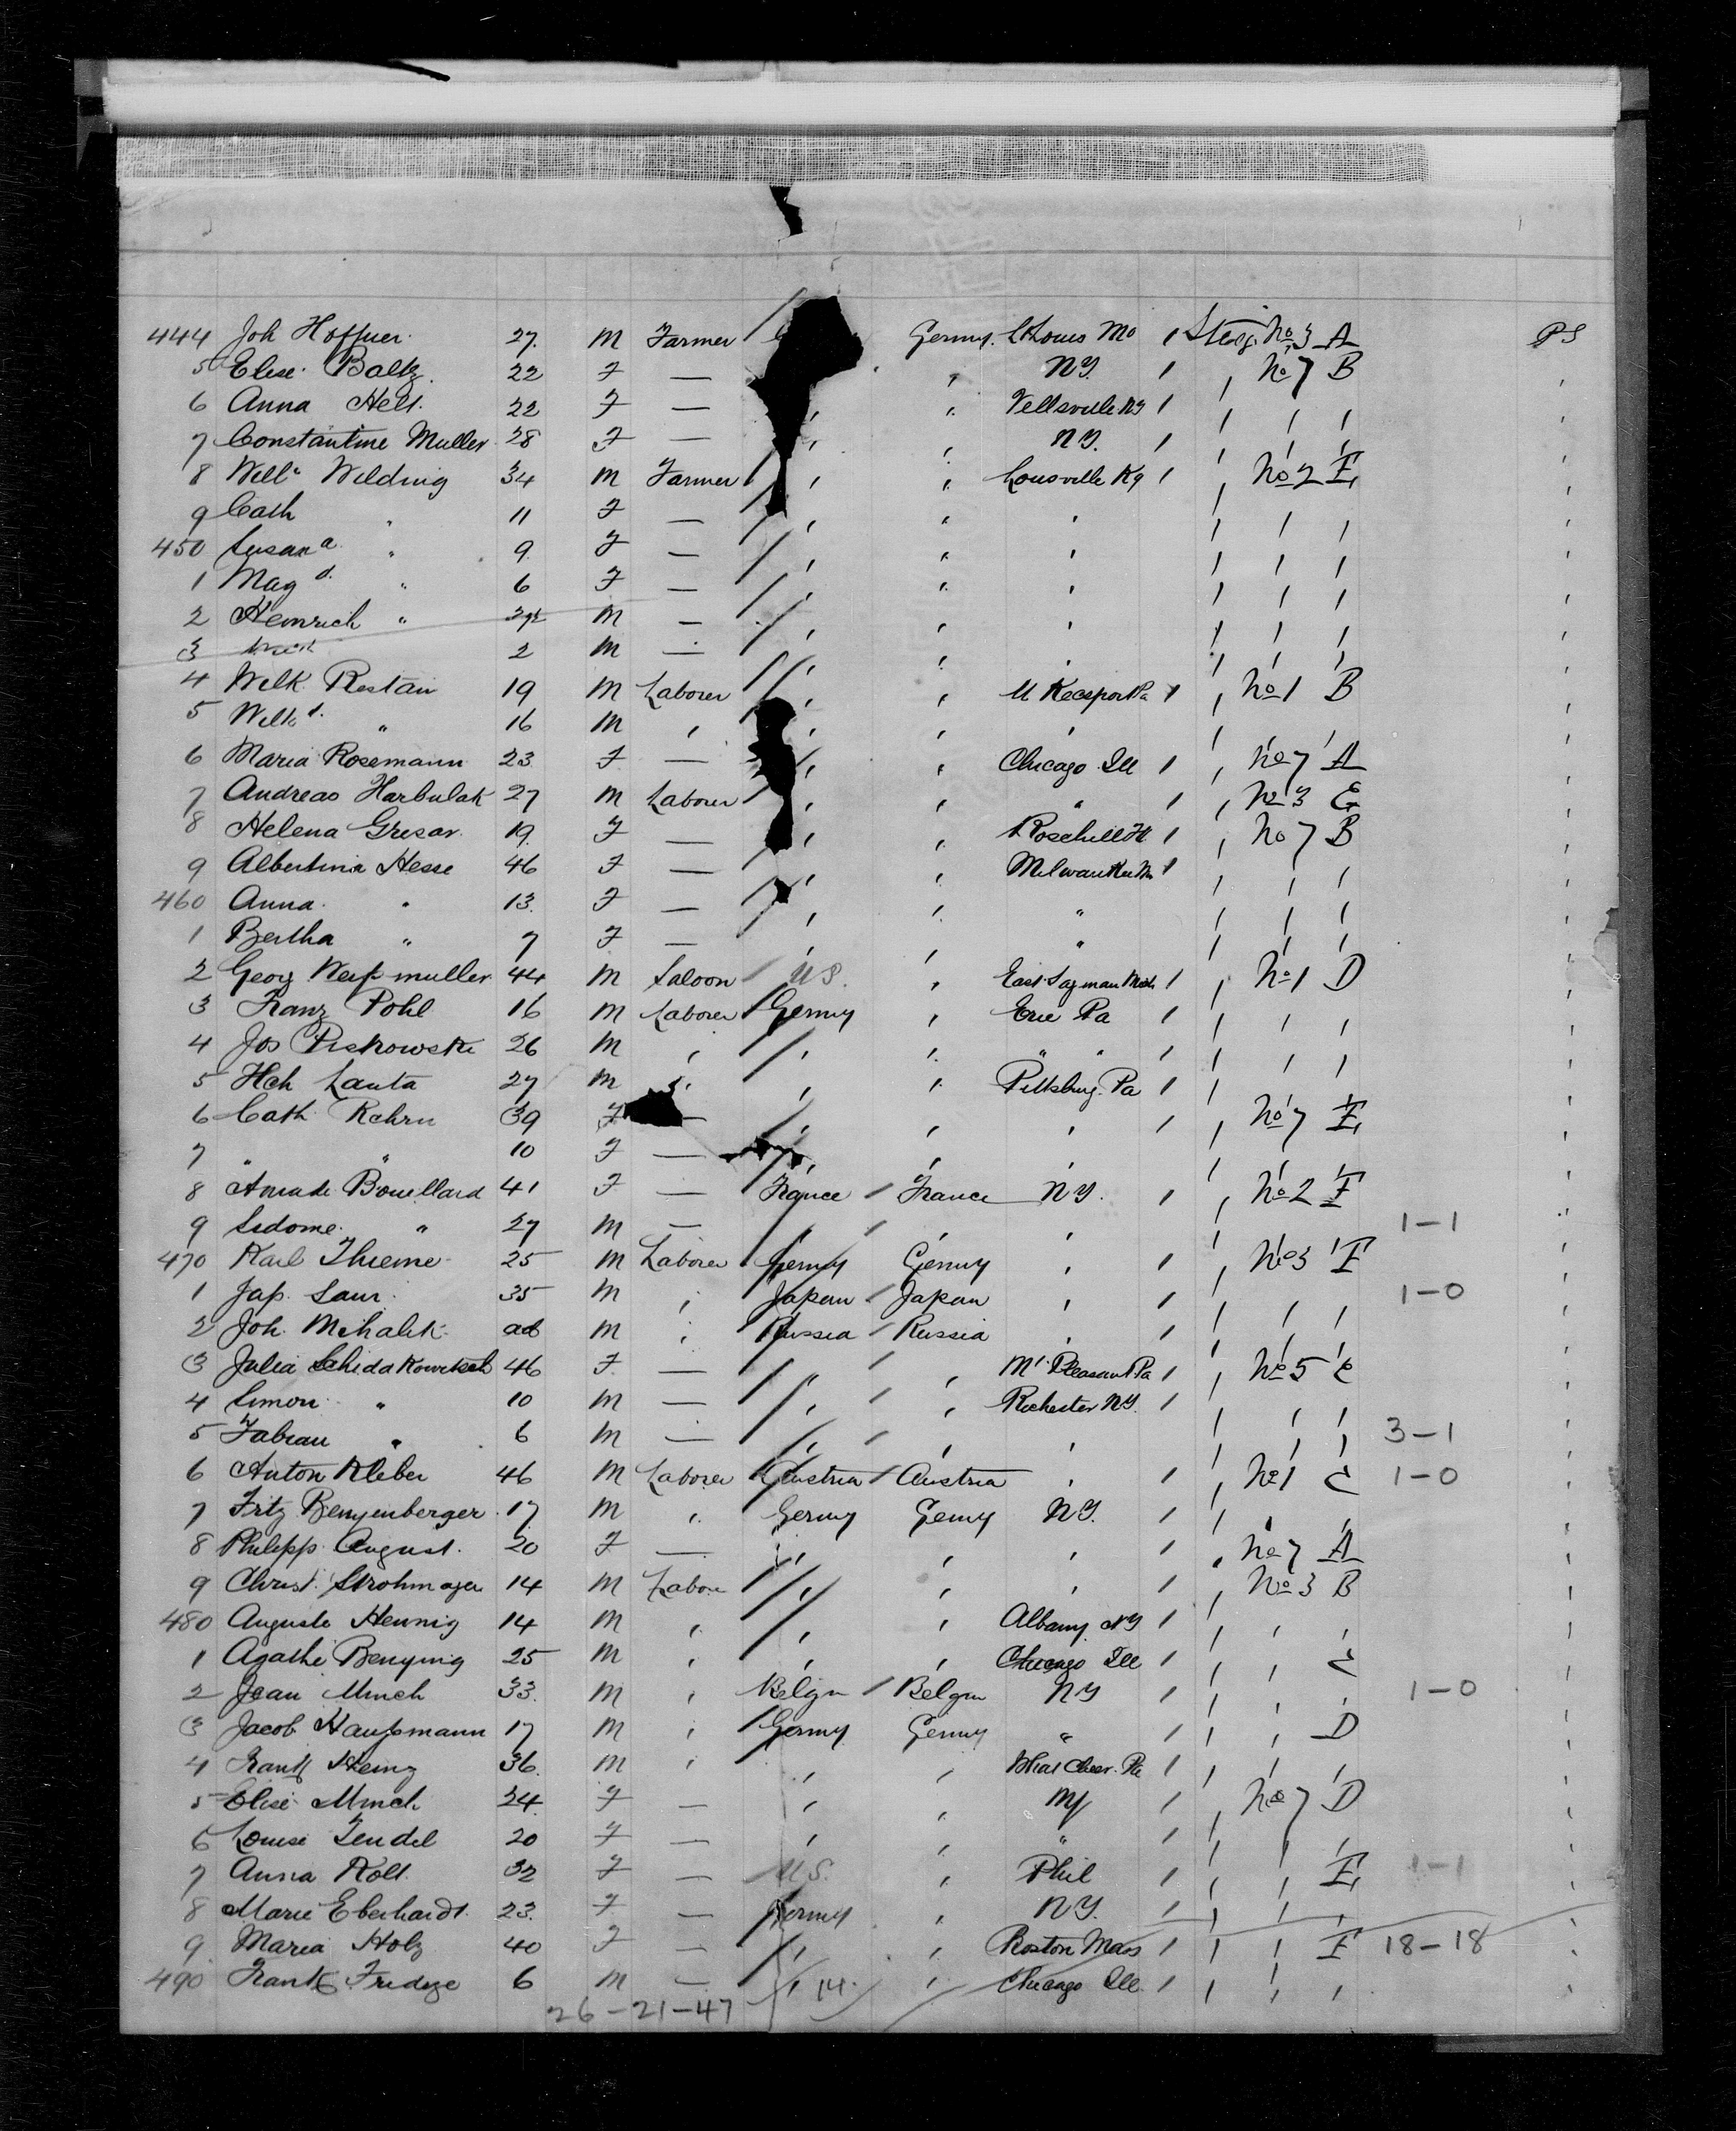 444 Joh Hoffner 27. M Farmer Germy. St Louis Mo 1 Steerg. No 3 A PS
5 Elise Baltz 22 F — " N.Y. 1 , No 7 B
6 Anna Hell. 22 F — , " Wellsville NY 1 , , ,
7 Constantine Muller 28 F — , , N.Y. 1 , , ,
8 Wilh Welding 34 M Farmer , " Lousville Ky 1 , No 2 E
9 Cath " 11 F — , " " , , ,
450 Susana " 9 F — , " " , , ,
1 Magd. " 6 F — , " " , , ,
2 Heinrich " M — , " " , , ,
3 2 M — , " " , , ,
4 Wilh. Restan 19 M Laborer , , M Keesport Pa 1 , No 1 B
5 " 16 M , , , , , , ,
6 Maria Rosemann 23 F — , , Chicago Ill 1 , No 7 A
7 Andreas Harbulak 27 M Laborer , , " 1 , No 3 E
8 Helena Gresar 19 F — , , Rosehill 1 , No 7 B
9 Albertina Hesse 46 F — , , Milwaukee 1 , , ,
460 Anna " 13 F — , , " , , ,
1 Bertha " 7 F — , , " , , ,
2 Georg Weissmuller 44 M Saloon U S. , East Saginaw Mich 1 , No 1 D
3 Franz Pohl 16 M Laborer Germy , Erie Pa 1 , , ,
4 Jos Piskowski 26 M , , , " " 1 , , ,
5 Hch Lauta 27 M , , , Pittsburg. Pa 1 ,
6 Cath Rehrn 39 F — , , , 1 , No 7 E
7 " " 10 F — , , , , , ,
8 Amade Bouellard 41 F — France France N Y. 1 , No 2 F
9 Sidome " 27 M — , , , , , , 1-1
470 Karl Thieme 25 M Laborer Germy Germy , 1 , No 3 F
1 Jap. Saur 35 M , Japan Japan , 1 , , , 1-0
2 Joh. Mihalik ad M , Russia Russia , 1 , , ,
3 Julia Schidakowitsch 46 F — " , Mt Pleasant Pa 1 , No 5 C
4 Simon " 10 M — , , Rochester N.Y. 1 , , ,
5 Fabian " 6 M — , , , , , , 3-1
6 Anton Kleber 46 M Laborer Austria Austria , 1 , No 1 C 1-0
7 Fritz Benyenberger 17 M , Germy Germy N.Y. 1 , , ,
8 Philipp August. 20 F — , , , 1 , No 7 A
9 Christ. Strohmayer 14 M Labor , , , 1 , No 3 B
480 Auguste Hennig 14 M , , , Albany NY 1 , , ,
1 Agathe Benynig 25 M , , , Chicago Ill 1 , , C
2 Jean Minch 33. M , Belgm Belgm NY 1 , , , 1-0
3 Jacob Haussmann 17 M , Germy Germy " 1 , , D
4 Frank Heinz 36. M , , , What Cheer. Pa 1 , , ,
5 Elise Minch 24. F — , , NY 1 , No 7 D
6 Louise Tendel 20 F — , , " 1 , , ,
7 Anna Koll 32 F — U.S. , Phil 1 , , E 1-1
8 Marie Eberhardt. 23. F — Germy , N.Y. 1 , , ,
9 Maria Holz 40 F — , , Boston Mass 1 , , F 18-18
490 Frank Fridge 6 M — , 14. , Chicago Ill. 1 , , ,
26-21-47